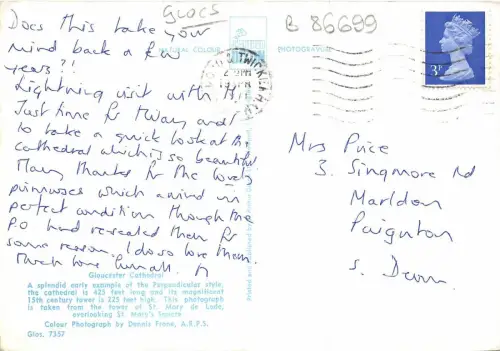 GLOCS
B 86699
Does this take your
mind back a few
years?!
Lightning visit with
Just time for and
to take a quick look at the
cathedral which is so beautiful
Many thanks for the lovely
primroses which arrived in
perfect condition though the
P.O had resealed them for
some reason. I do so love them.
Much love
NATURAL COLOUR
PHOTOGRAPH
3P
Mrs Price
3. Singmore Rd
Marldon
Paignton
S. Devon.
Gloucester Cathedral
A splendid early example of the Perpendicular style,
the cathedral is 425 feet long and its magnificent
15th century tower is 225 feet high. This photograph
is taken from the tower of St. Mary de Lode,
overlooking St. Mary's Square
Colour Photograph by Dennis Frone, A.R.P.S.
Glos. 7357